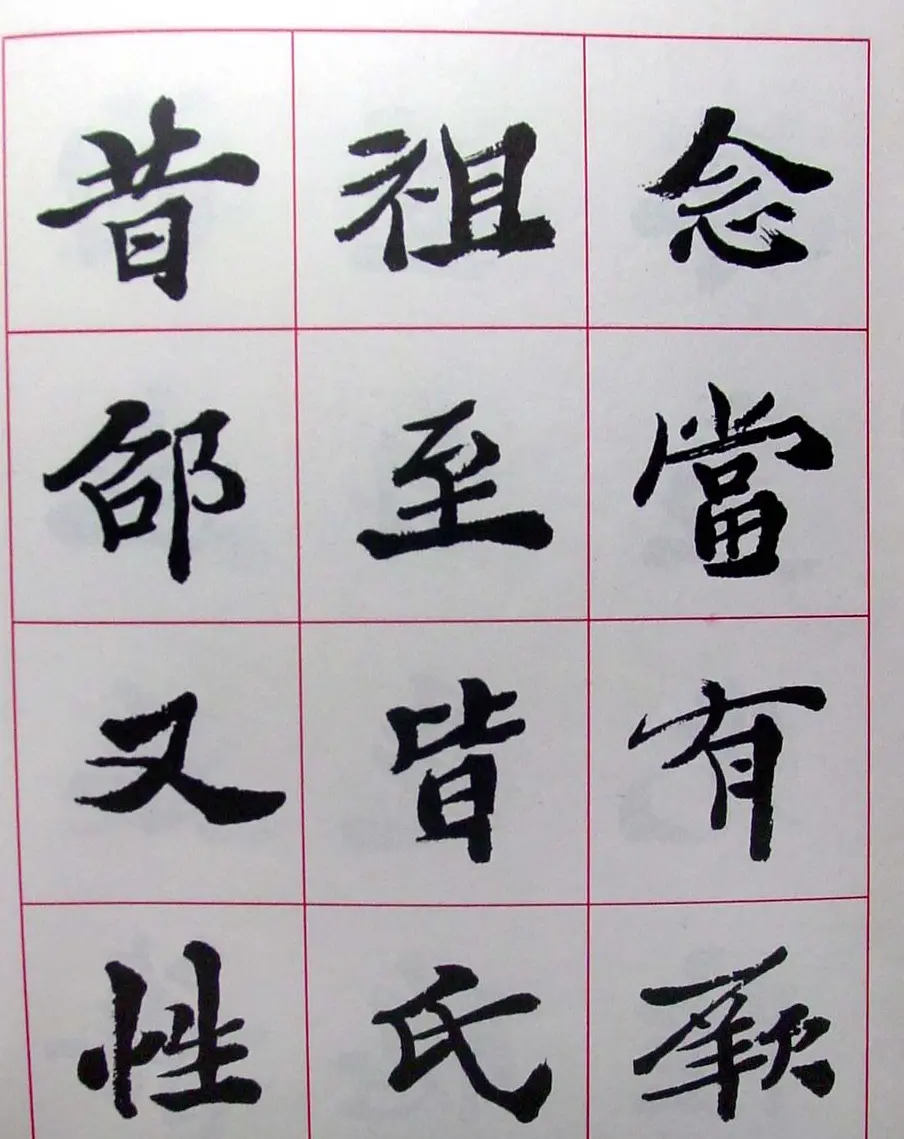 念當有厥
祖至皆氏
昔郃又性